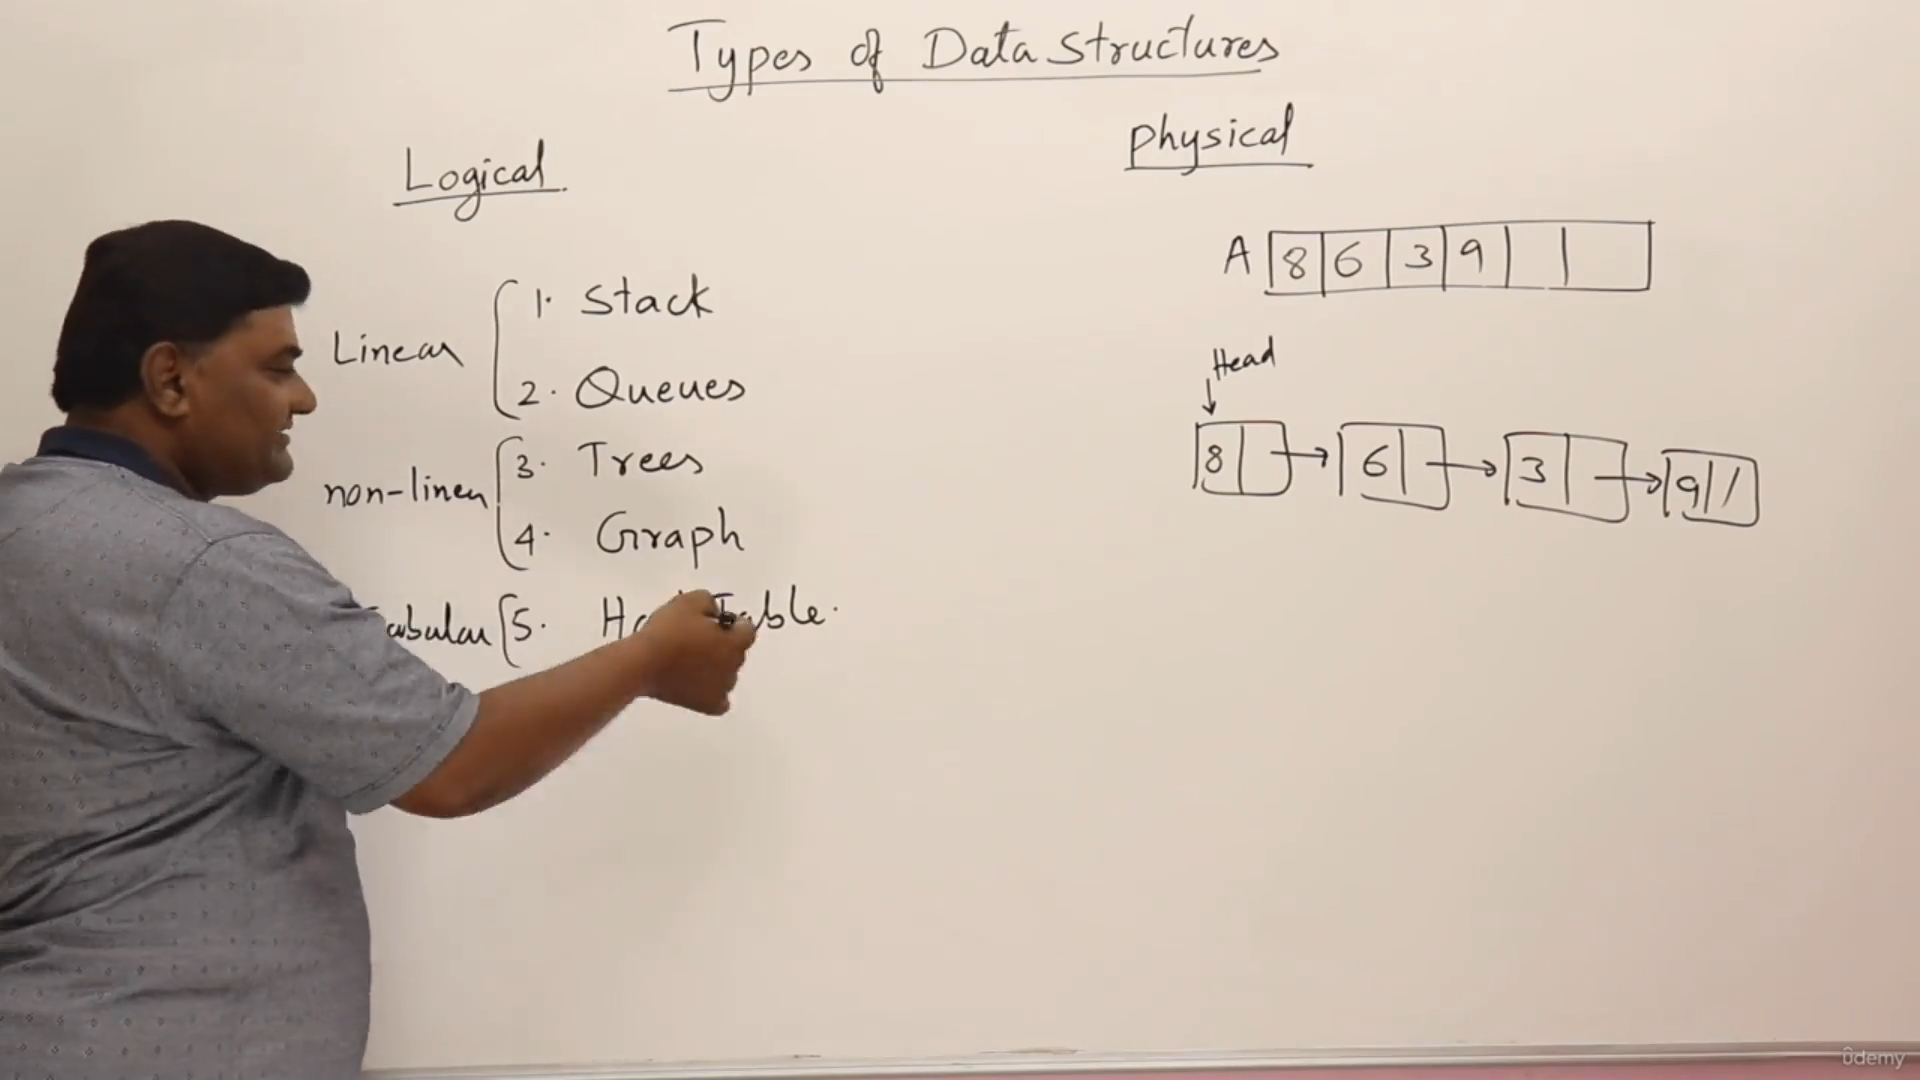 Types of Data Structures
Logical
Linear
1. Stack
2. Queues
non-linear
3. Trees
4. Graph
5. Table.
physical
A 8 6 3 9
Head
8 6 3 9 /
ûdemy